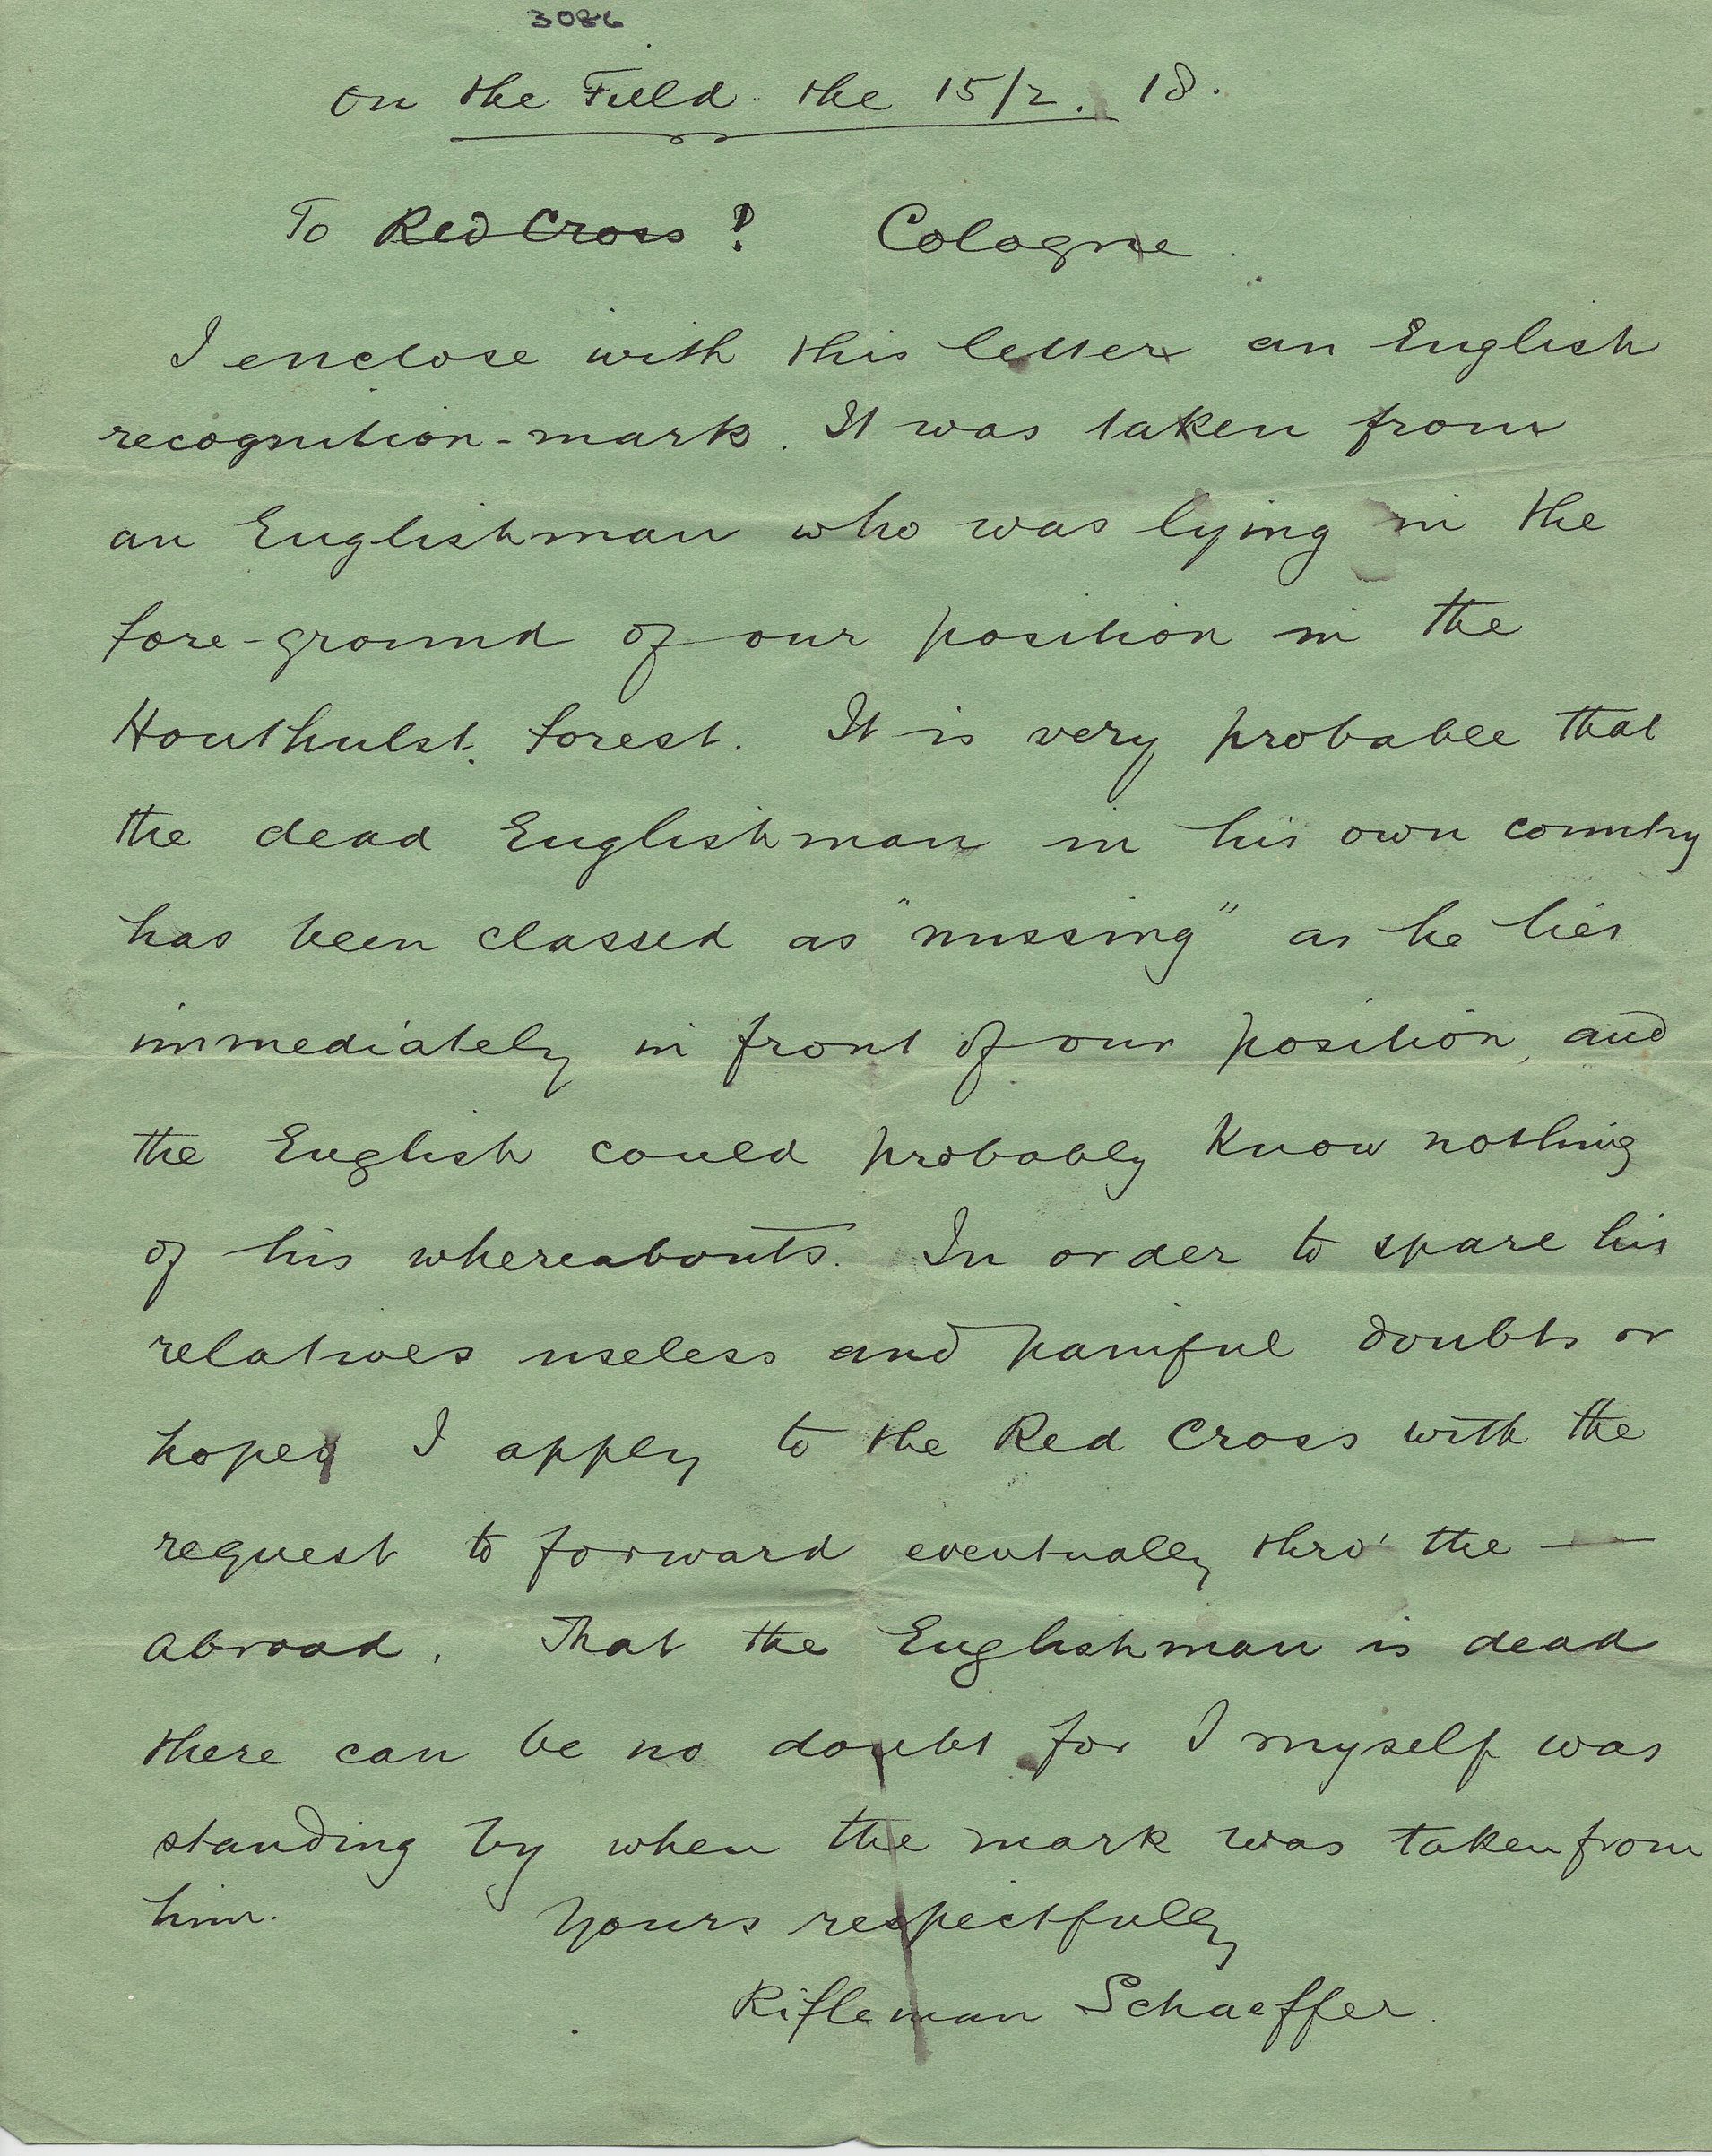 3086
On the Field. the 15/2. 18.
To Red Cross? Cologne.
I enclose with this letter an English
recognition-mark. It was taken from
an Englishman who was lying in the
fore-ground of our position in the
Houthulst. forest. It is very probable that
the dead Englishman in his own country
has been classed as "missing" as he lies
immediately in front of our position, and
the English could probably know nothing
of his whereabouts. In order to spare his
relatives useless and painful doubts or
hopes I apply to the Red Cross with the
request to forward eventually thro' the —
abroad. That the Englishman is dead
there can be no doubt for I myself was
standing by when the mark was taken from
him. Yours respectfully
Rifleman Schaeffer.